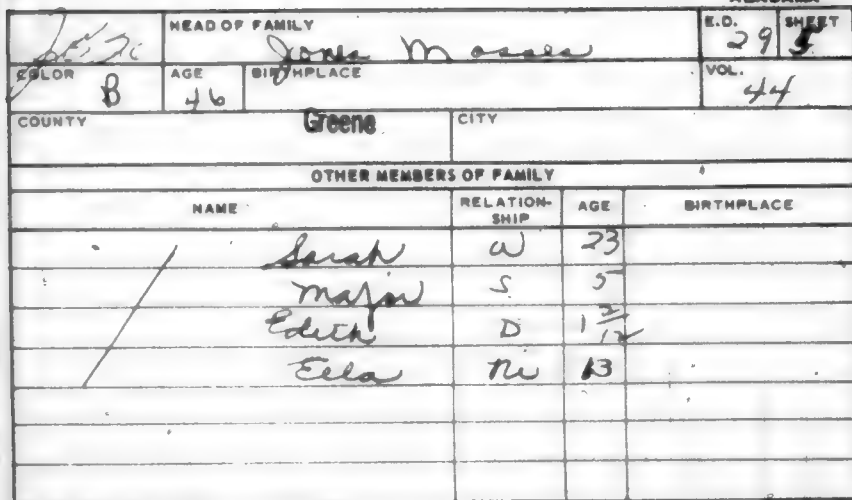 ALABAMA
HEAD OF FAMILY Jones Mosses E.D. 29 SHEET 5
COLOR B AGE 46 BIRTHPLACE VOL. 44
COUNTY Greene CITY
OTHER MEMBERS OF FAMILY
NAME RELATION-SHIP AGE BIRTHPLACE
Sarah W 23
Major S 5
Edith D 1 2/12
Ella Ni 13